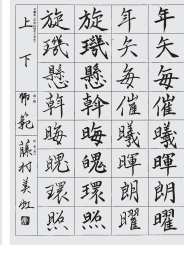 年矢毎催曦暉朗曜
年矢毎催曦暉朗曜
旋璣懸斡晦魄環照
旋璣懸斡晦魄環照
上下 師範 藤村美